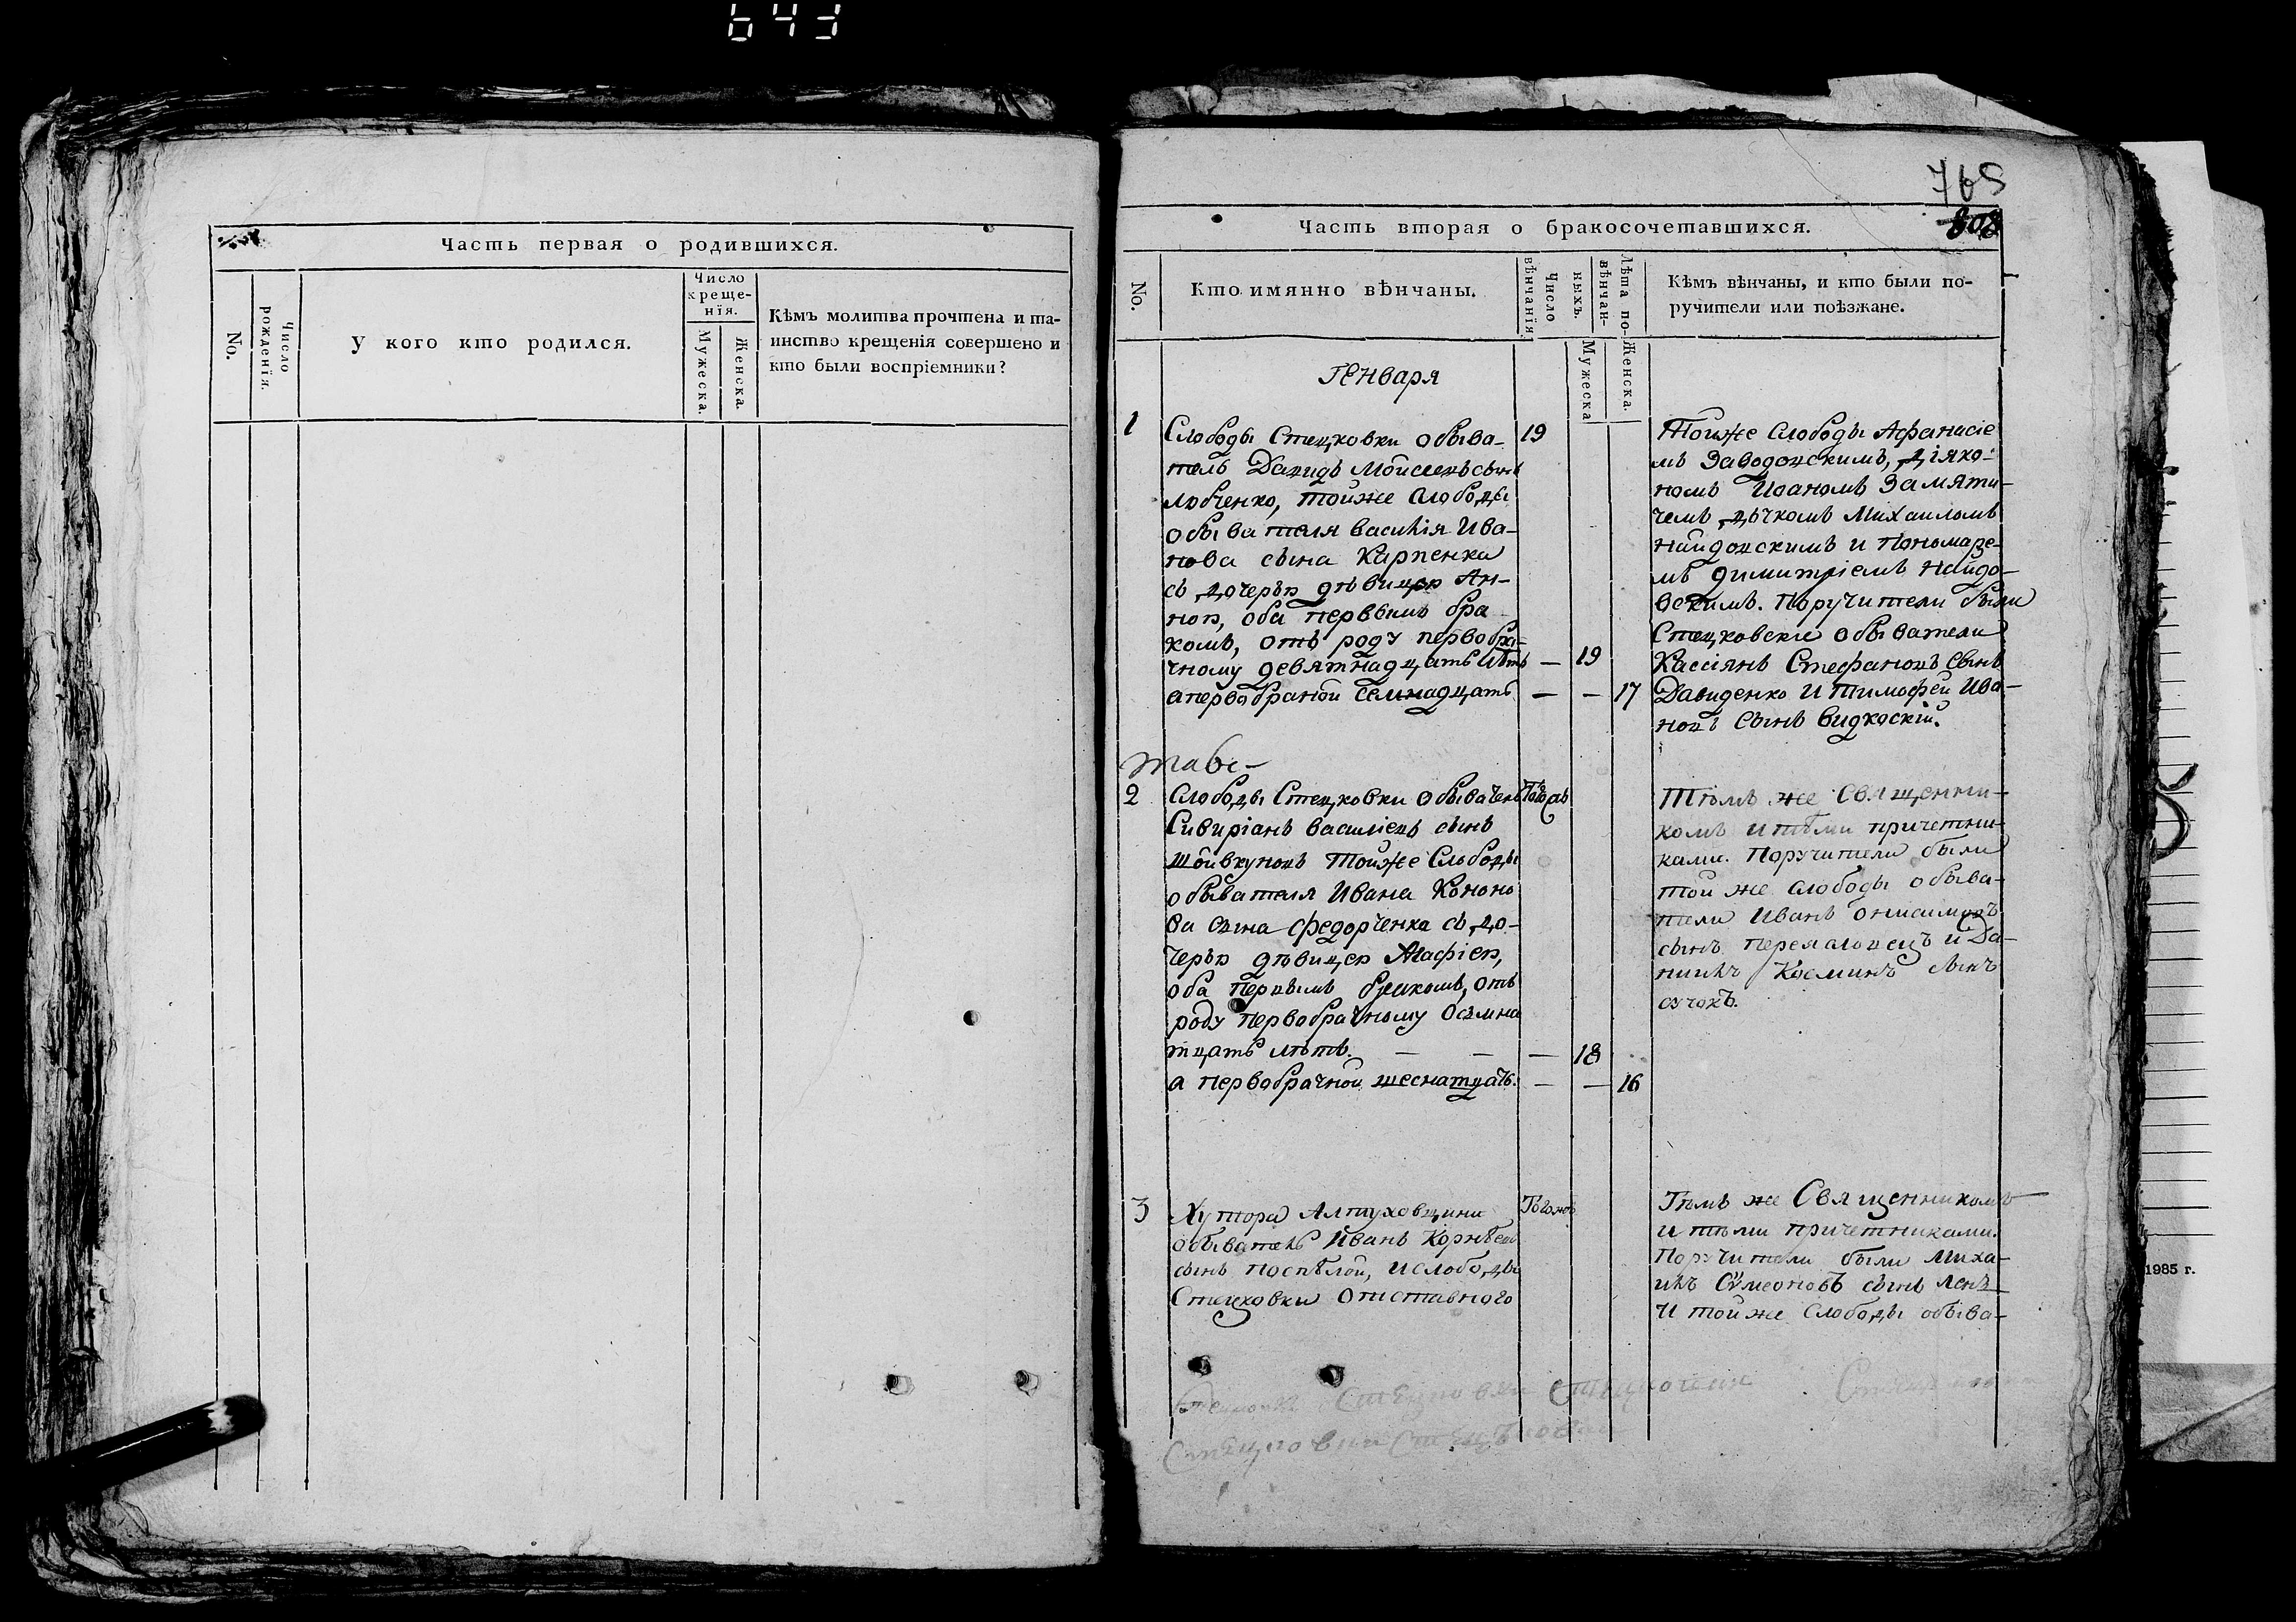 643
Часть первая о родившихся.
No.
Число рожденїя.
У кого кто родился.
Число
креще-
нїя.
Мужеска.
Женска.
Кѣмъ молитва прочтена и та-
инство крещенїя совершено и
кто были воспрїемники?
765
808
Часть вторая о бракосочетавшихся.
No.
Кто имянно вѣнчаны.
Число вѣнчанїя
Лѣта по-
вѣнчан-
ныхъ.
Мужеска
Женска.
Кѣмъ вѣнчаны, и кто были по-
ручители или поѣзжане.
Генваря
1
Слободы Стецковки обыва-
тель Давидъ Мойсеевъ сынъ
Любченко, тойже слободы
обывателя Василїя Ива-
нова сына Карпенка
съ дочерью дѣвицею Ан-
ною, оба первымъ бра
комъ, отъ роду первобра-
чному девятнадцать лѣтъ
а первобрачной семнадцать
19
— 19
— — 17
Тойже слободы Афанасїе
мъ Заводовскимъ, дїяко-
номъ Иоаномъ Замяти-
чемъ дьчкомъ Михаиломъ
Найдовскимъ и пономаре-
мъ Димитрїемъ Найдо-
вскимъ. Поручители были
Стецковские обыватели
Кассїянъ Стефановъ сынъ
Давиденко и Тимофей Ива-
новъ сынъ Видкоскїй.
2
Слободы Стецковки обыватель
Сивирїанъ Василїевъ сынъ
Шойвкуновъ тойже слободы
обывателя Ивана Кононо
ва сына Федорченка съ до-
черью дѣвицею Агафїею,
оба первымъ бракомъ, отъ
роду первобрачному осьмна
тцать лѣтъ. — — — 18
а первобрачной шеснатцать. — — 16
Тѣмъ же священни-
комъ и тѣми причетни-
ками. Поручители были
той же слободы обыва-
тели Иванъ Онисимовъ
сынъ и Да-
нїилъ Косминъ сынъ
Сучокъ.
3
Хутора Алтуховщини
обыватель Иванъ Корнѣевъ
сынъ Поспѣлой, и слободы
Стецковки отставного
Тѣмъ же священникомъ
и тѣми причетниками.
Поручители были Миха-
илъ Сѵмеоновъ сынъ
и тойже слободы обыва-
1985 г.